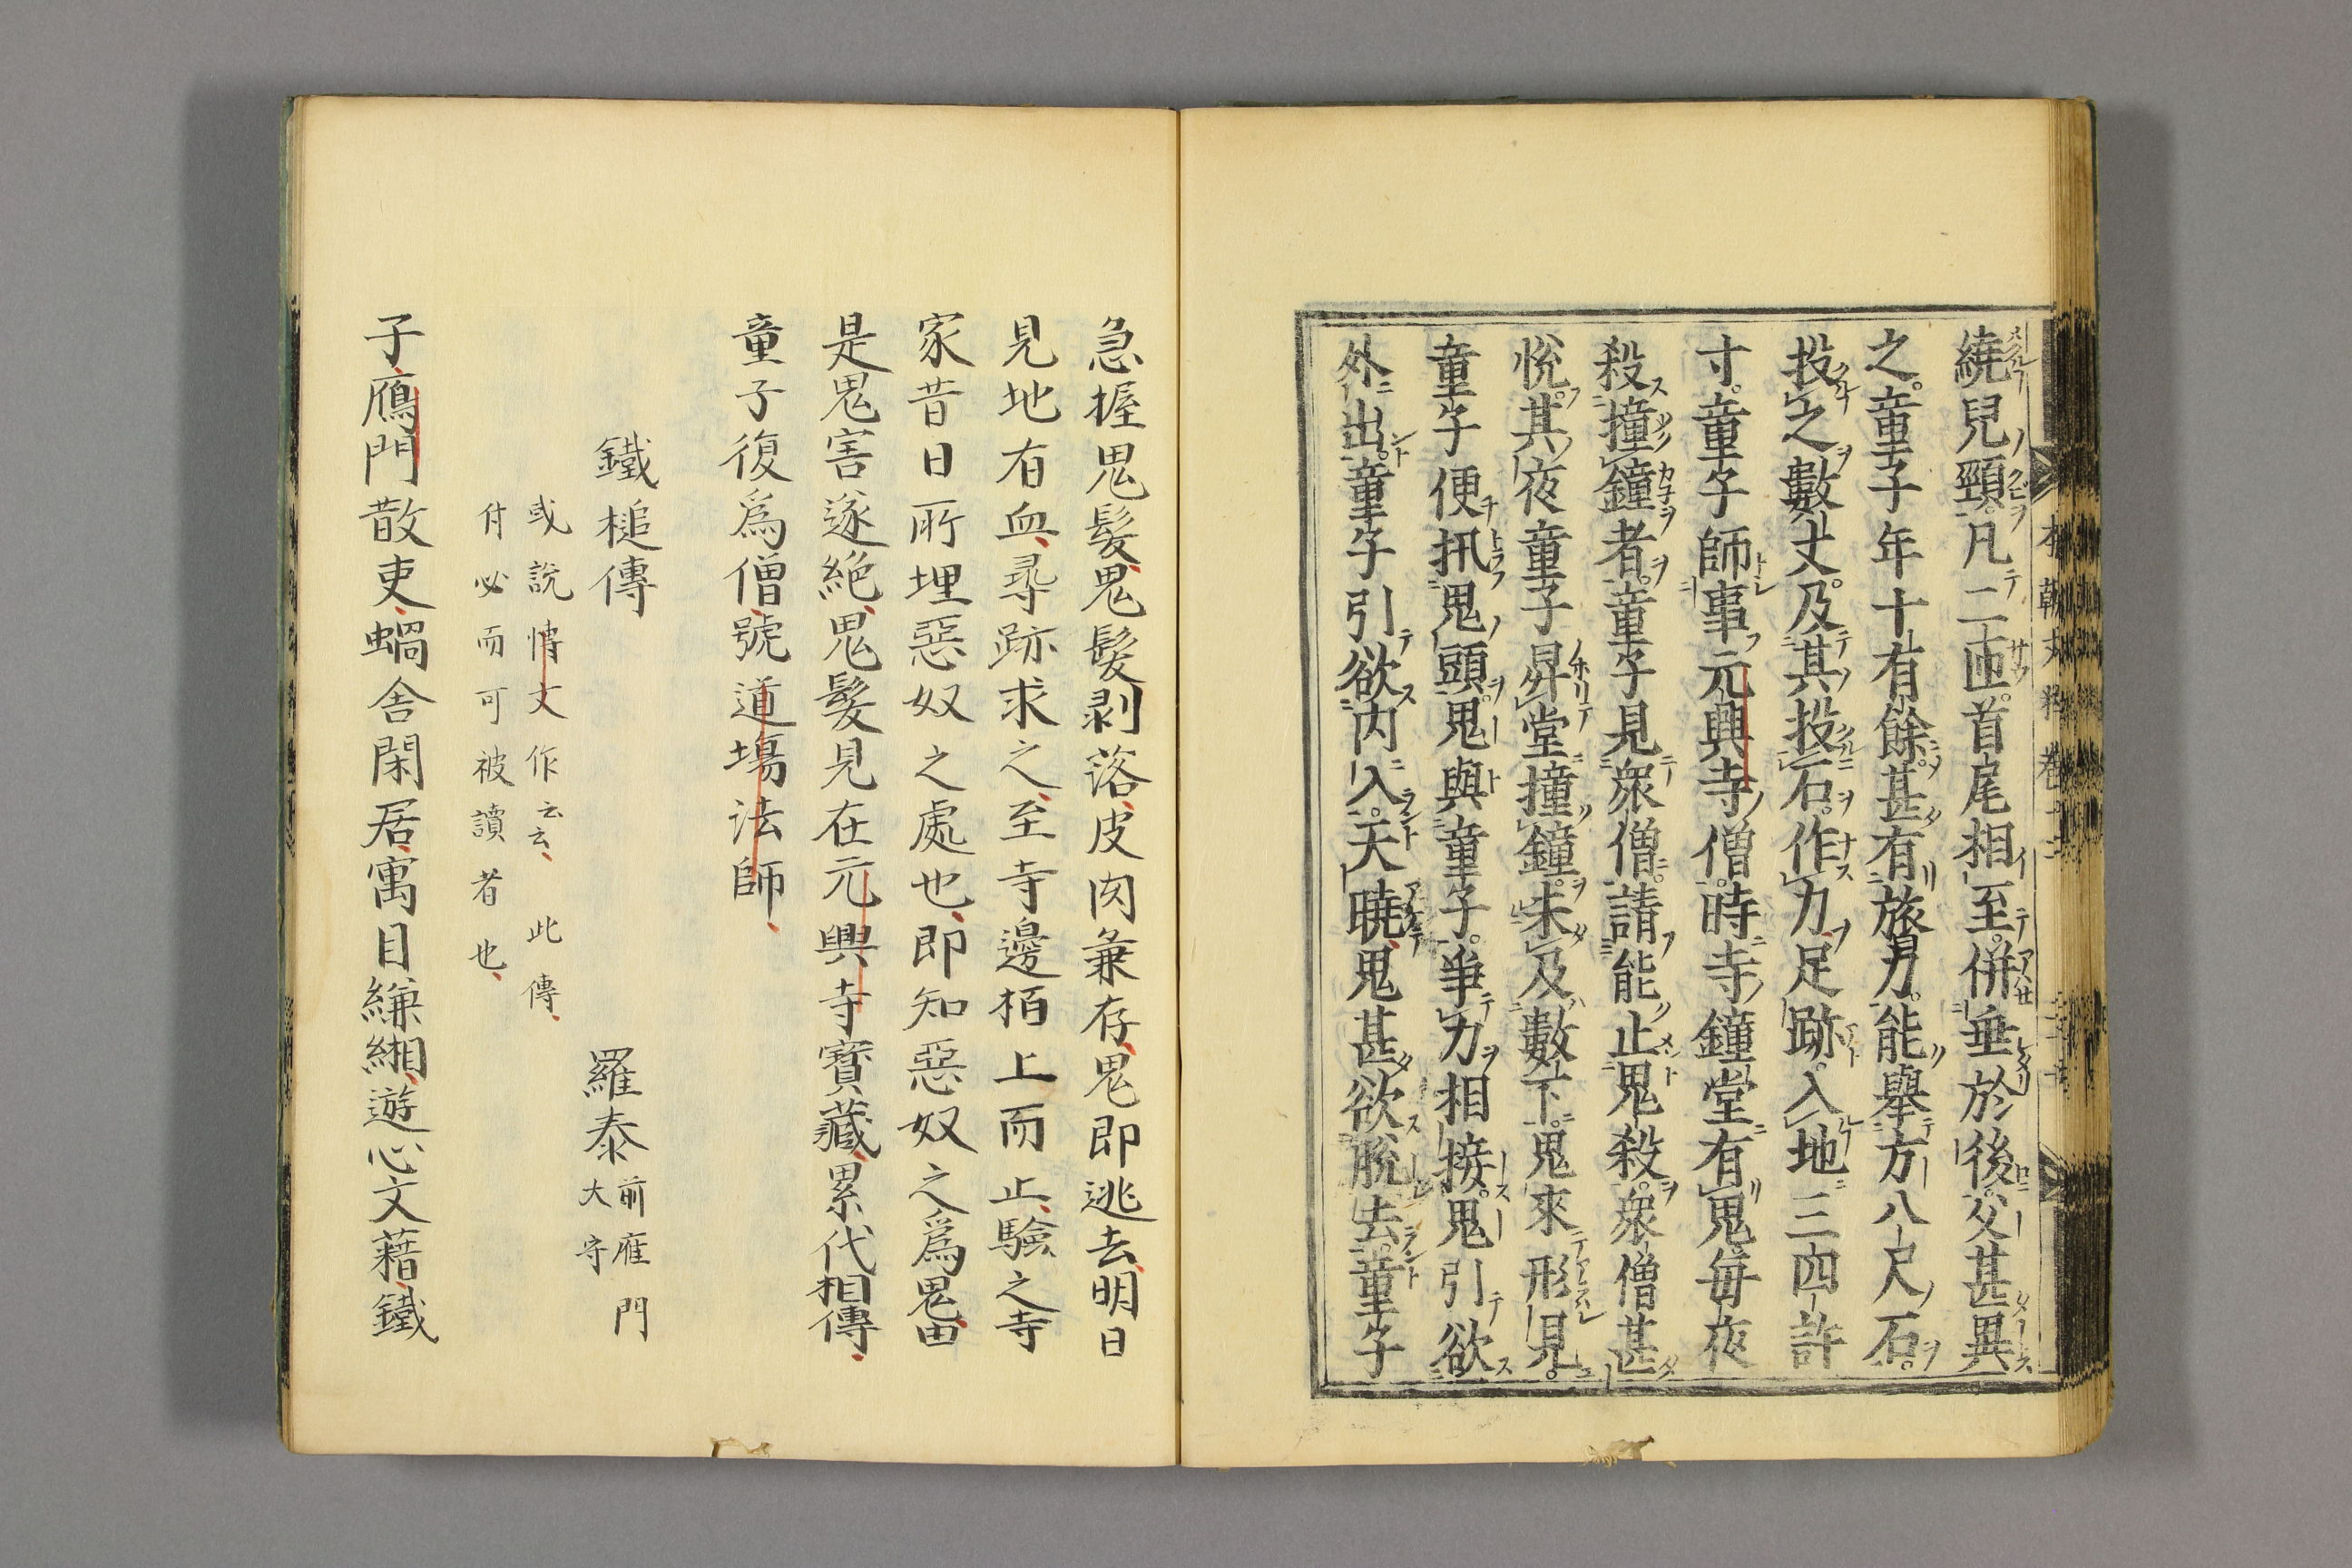 繞兒頸。凡二匝。首尾相至。併垂於後。父甚異
之。童子年十有餘。甚有旅力。能擧方八尺石。
投之數丈。及其投石。作力足跡。入地三四許
寸。童子師事元興寺僧。時寺鐘堂有鬼每夜
殺撞鐘者。童子見衆僧。請能止鬼殺。衆僧甚
悅。其夜童子昇堂撞鐘。未及數下。鬼來形見。
童子便扟鬼頭。鬼與童子。爭力相接。鬼引欲
外出。童子引欲內入。天曉鬼甚欲脫去。童子
急握鬼髮、鬼髮剥落、皮肉兼存、鬼即逃去、明日
見地有血、尋跡求之、至寺邊栢上而止、驗之寺
家昔日所埋惡奴之處也、即知惡奴之爲鬼、由
是鬼害遂絶、鬼髮見在元興寺寶藏、累代相傳、
童子復爲僧、號道場法師、
鐵槌傳 羅泰前雁門大守
或說情文作云云、此傳、
付必而可被讀者也、
子、鴈門散吏、蝸舍閑居、寓目縑緗、遊心文藉、鐵